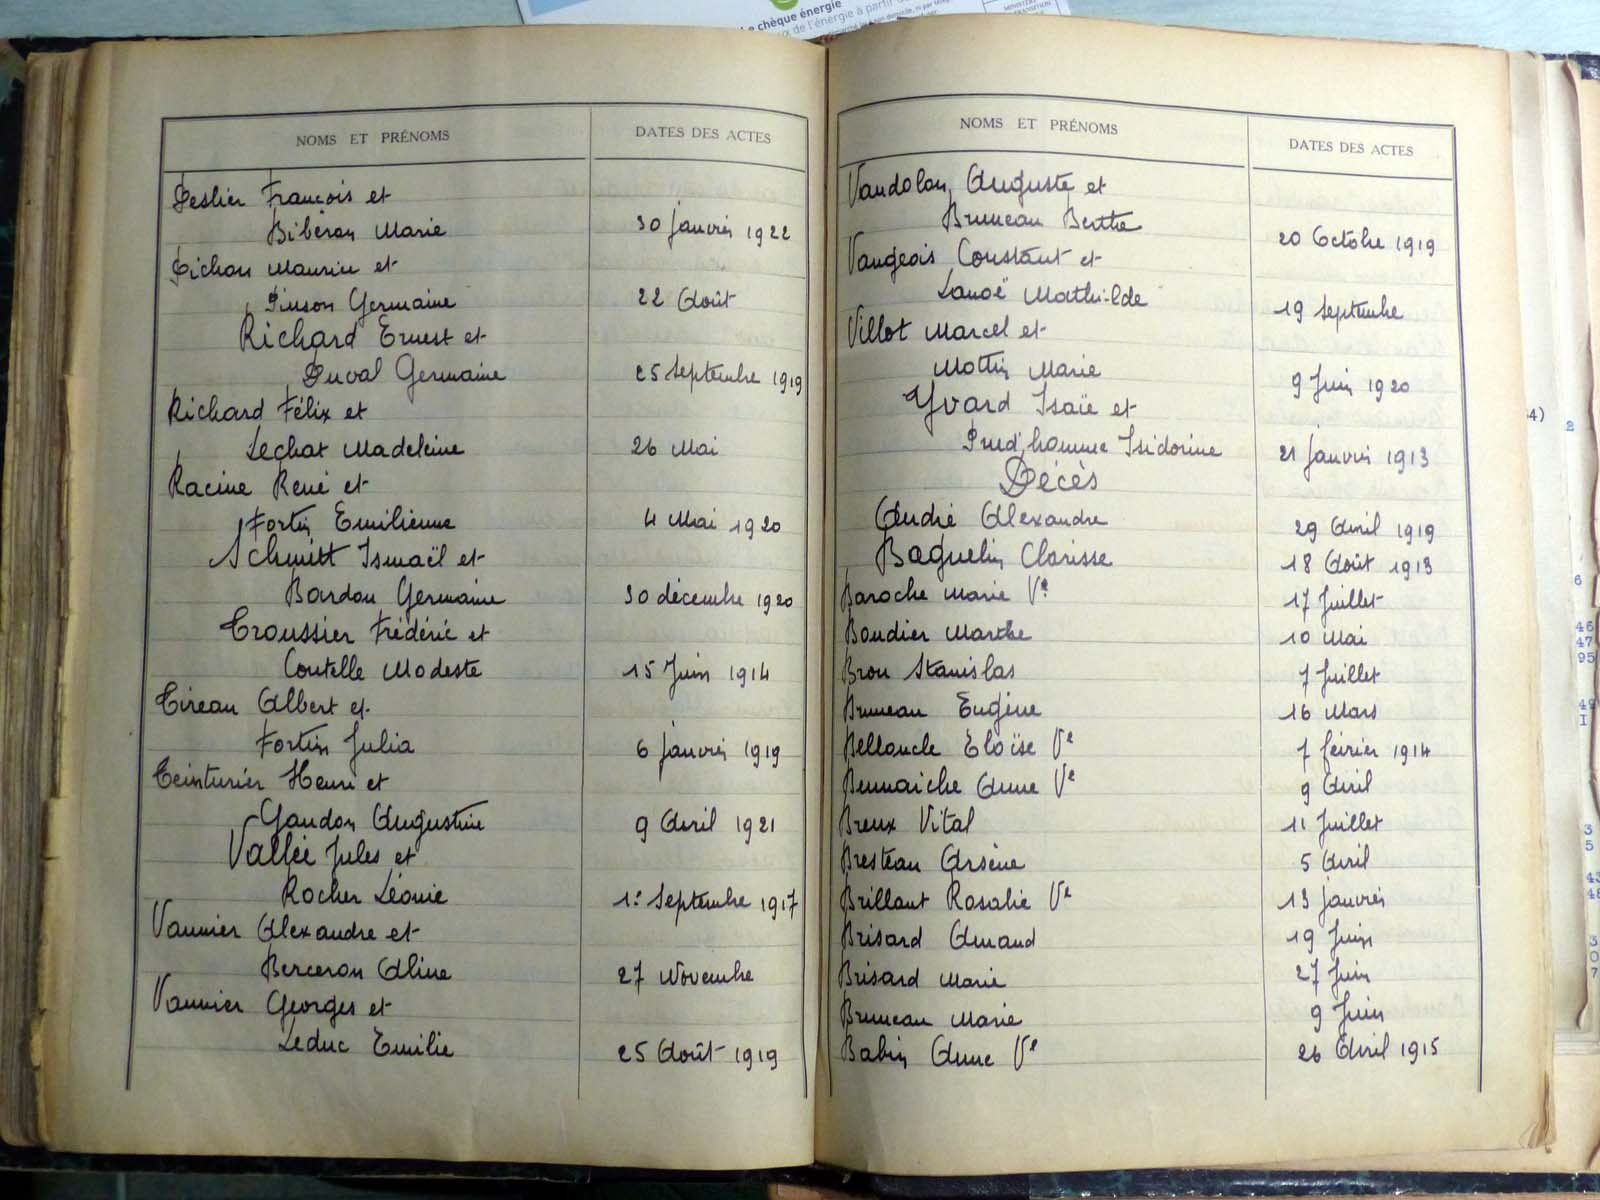 le chèque énergie
NOMS ET PRÉNOMS DATES DES ACTES
Peslier François et
Bibéron Marie 30 janvier 1922
Pichon Maurice et
Pinson Germaine 22 Août
Richard Ernest et
Duval Germaine 25 Septembre 1919
Richard Félix et
Lechat Madeleine 26 Mai
Racine René et
Fortin Emilienne 4 Mai 1920
Schmitt Ismaël et
Bardou Germaine 30 décembre 1920
Troussier Frédéric et
Coutelle Modeste 15 Juin 1914
Tireau Albert et
Fortin Julia 6 janvier 1919
Teinturier Henri et
Gaudon Augustine 9 Avril 1921
Vallée Jules et
Rocher Léonie 1er Septembre 1917
Vannier Alexandre et
Berceron Aline 27 Novembre
Vannier Georges et
Leduc Emilie 25 Août 1919
NOMS ET PRÉNOMS DATES DES ACTES
Vaudolon Auguste et
Bruneau Berthe 20 Octobre 1919
Vaugeois Constant et
Lanoë Mathilde 19 Septembre
Villot Marcel et
Mottin Marie 9 Juin 1920
Yvard Isaïe et
Prud'homme Isidorine 21 janvier 1913
Décès
André Alexandre 29 Avril 1919
Baguelin Clarisse 18 Août 1913
Baroche Marie Ve 17 Juillet
Boudier Marthe 10 Mai
Brou Stanislas 7 Juillet
Bruneau Eugène 16 Mars
Bellaucle Eloïse Ve 7 février 1914
Bennaiche Anne Ve 9 Avril
Breux Vital 11 Juillet
Bresteau Arsène 5 Avril
Brillant Rosalie Ve 13 janvier
Brisard Amand 19 Juin
Brisard Marie 27 Juin
Bruneau Marie 9 Juin
Babin Anne Ve 26 Avril 1915